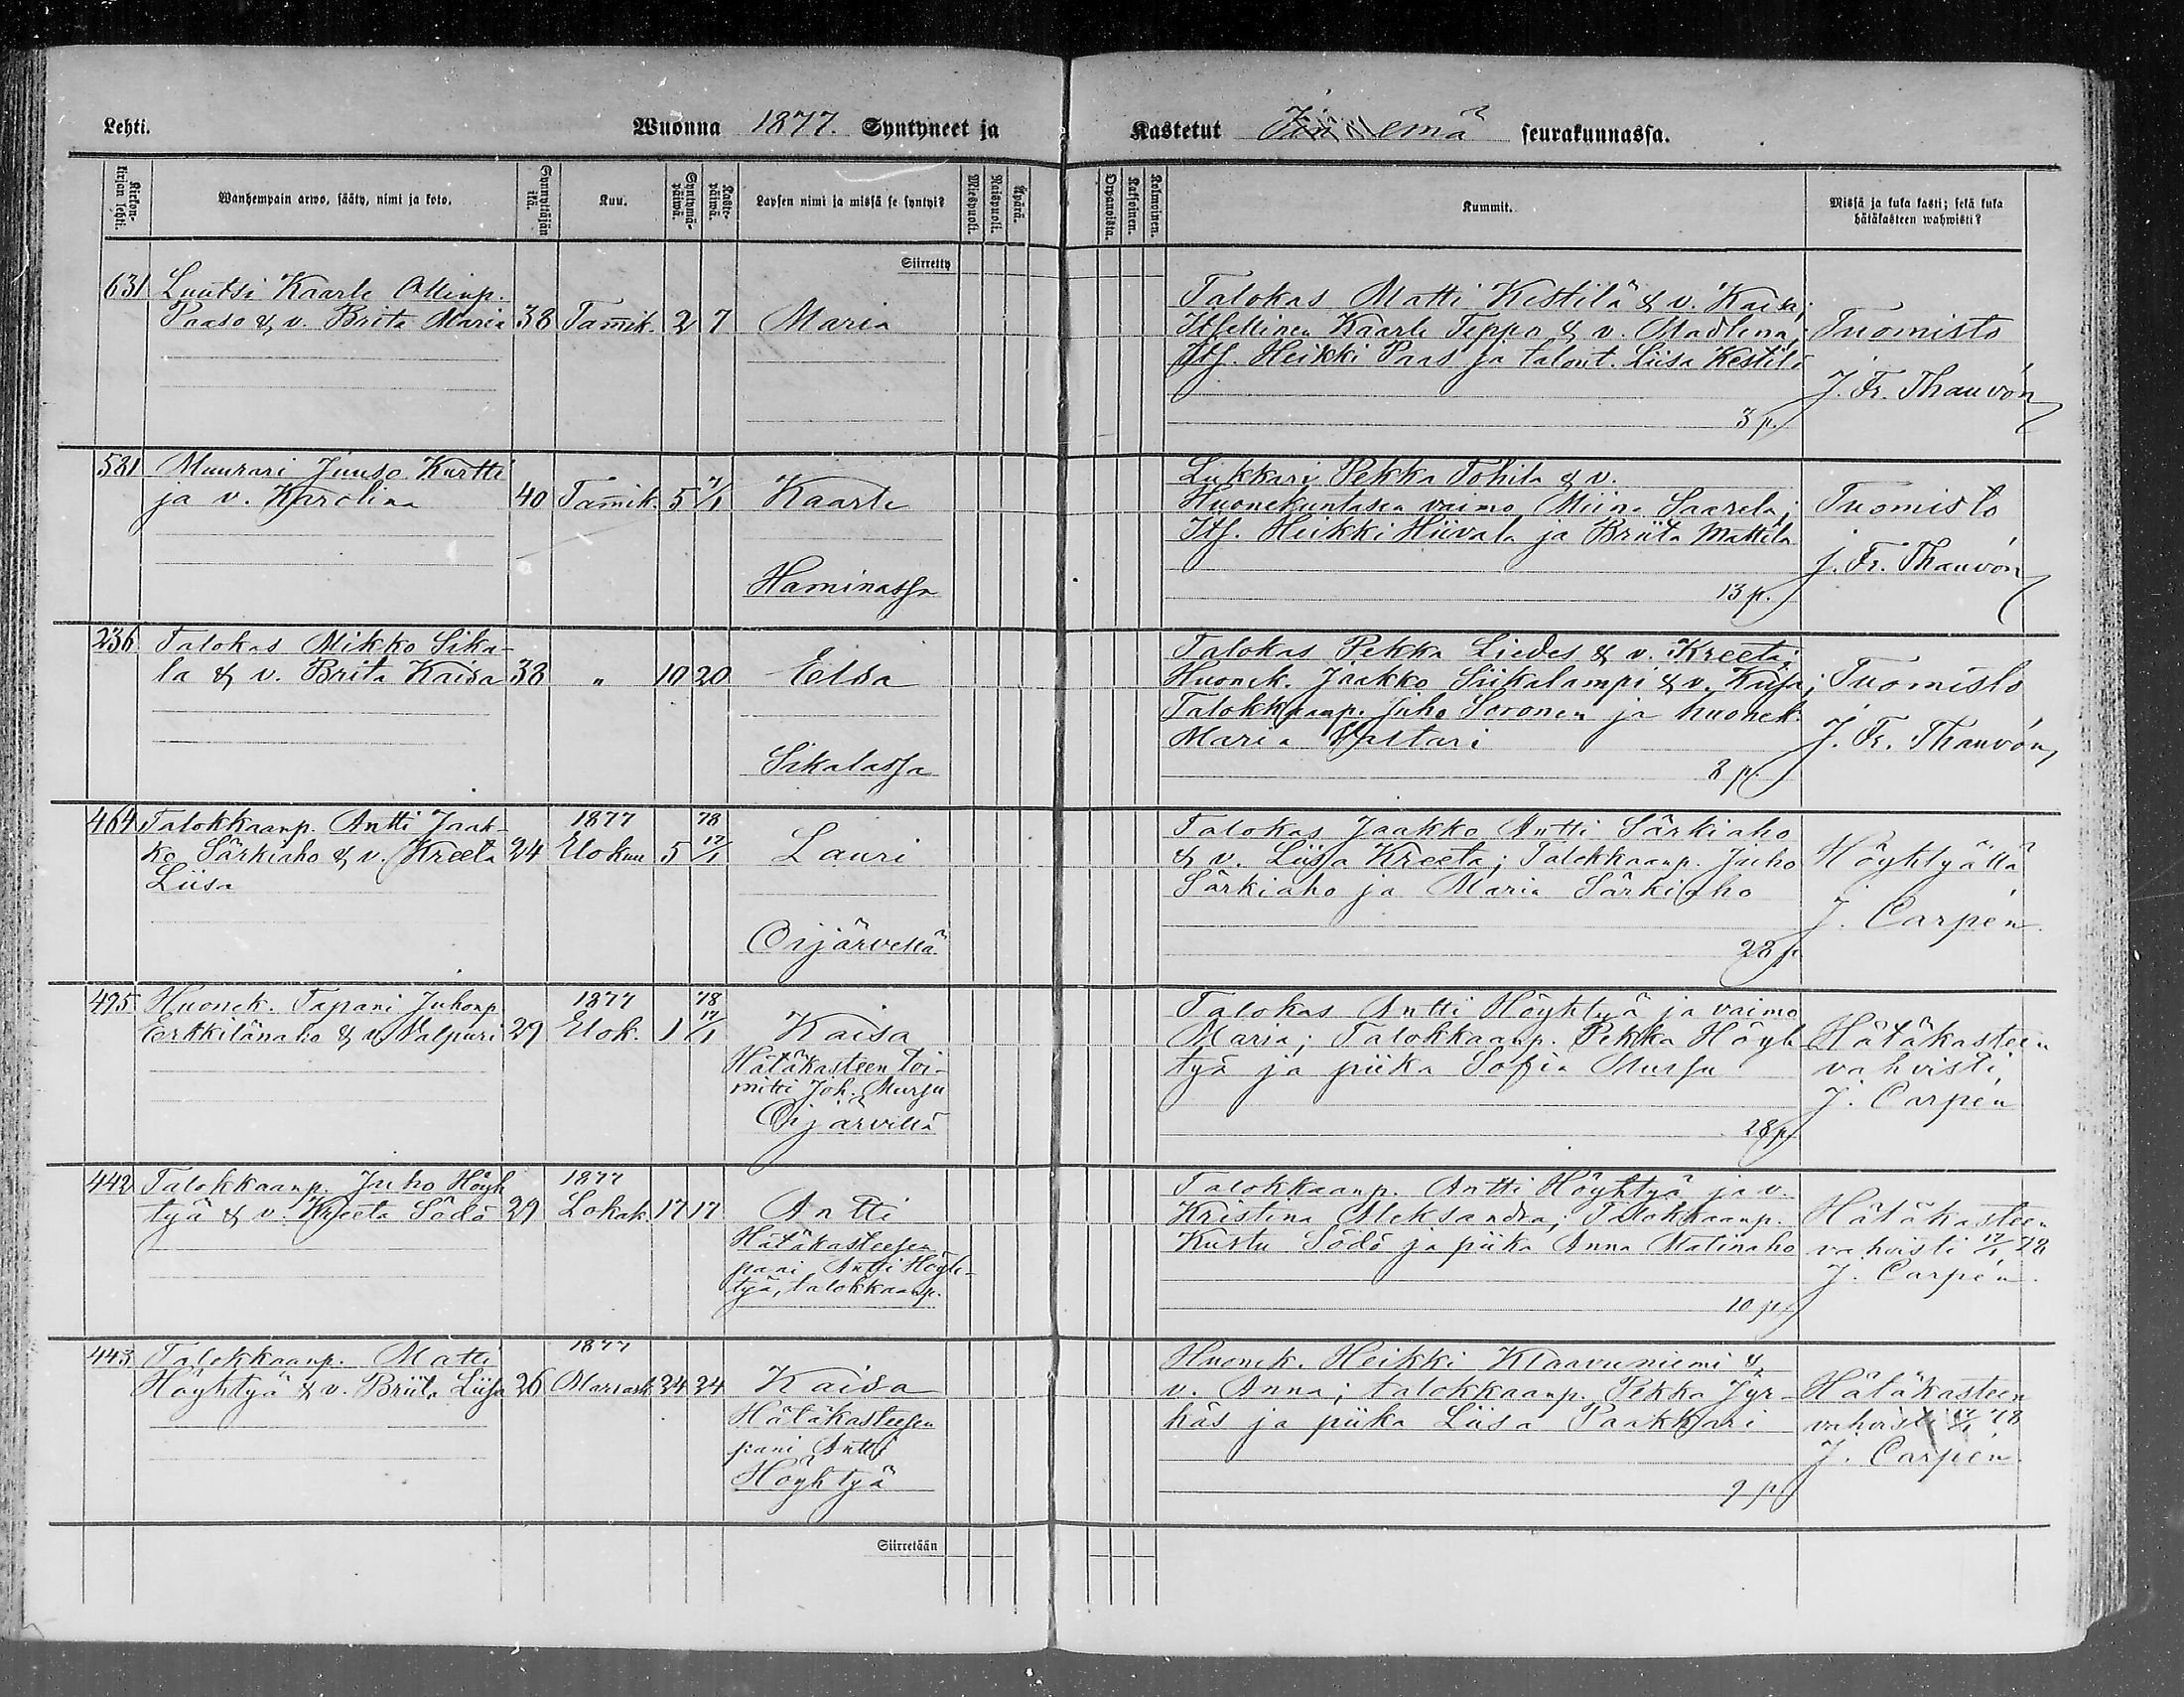 Lehti.
Wuonna 1877. Syntyneet ja
Kastetut emä seurakunnassa.
Kirkon-kirjan lehti.
Wanhempain arwo, sääty, nimi ja koto.
Synnyttäjän ikä.
Kuu.
Syntymä-päiwä.
Kaste-päiwä.
Lapsen nimi ja missä se syntyi?
Miespuoli.
Naispuoli.
Äpärä.
Orpanoista.
Kaksoinen.
Kolmoinen.
Kummit.
Missä ja kuka kasti; sekä kuka hätäkasteen wahwisti?
Siirretty
631 Luutsi Kaarle Ollinp.
Paaso & v. Brita Maria 38 Tamik. 2 7 Maria
Talokas Matti Kestilä & v. Kaisa;
Itsellinen Kaarle Teppo & v. Madlena;
Its. Heikki Paas ja talont. Liisa Kestilä
3 p.
Tuomisto
J. Fr. Thauvón
581 Muurari Juuso Kurtti
ja v. Karolina 40 Tamik. 5 7/1 Kaarle
Haminassa
Lukkari Pekka Tohila & v.
Huonekuntasen vaimo Miina Saarela;
Its. Heikki Hiivala ja Briita Mattila
13 p.
Tuomisto
J. Fr. Thauvón
236 Talokas Mikko Sika-
la & v. Brita Kaisa 38 " 10 20 Elsa
Sikalassa
Talokas Pekka Liedes & v. Kreeta;
Huonek. Jaakko Siikalampi & v. Kaisa;
Talokkaanp. Juho Soronen ja huonek.
Maria
8 p.
Tuomisto
J. Fr. Thauvón
464 Talokkaanp. Antti Jaak-
ko Särkiaho & v. Kreeta
Liisa
24
1877
Elokuu 5
78
17/1
Lauri
Oijärvellä
Talokas Jaakko Antti Särkiaho
& v. Liisa Kreeta; Talokkaanp. Juho
Särkiaho ja Maria Särkiaho
28 p
Höyhtyällä
J. Carpén.
495 Huonek. Tapani Juhonp
Erkkilänaho & v. Valpuri 29
1877
Elok. 1
78
17/1
Kaisa
Hätäkasteen toi-
mitti Joh. Mursu
Oijärvellä
Talokas Antti Höyhtyä ja vaimo
Maria; Talokkaanp. Pekka Höyh
tyä ja piika Sofia Mursu
28 p
Hätäkasteen
vahvisti
J. Carpén
442 Talokkaanp. Juho Höyh
tyä & v. Kreeta Södö 29
1877
Lokak. 17 17 Antti
Hätäkasteesen
pani Antti Höyh-
tyä, talokkaanp.
Talokkaanp. Antti Höyhtyä ja v.
Kristina Aleksandra; Talokkaanp.
Kustu Södö ja piika Anna Matinaho
10 p.
Hätäkasteen
vahvisti 17/1 78
J. Carpén.
443 Talokkaanp. Matti
Höyhtyä & v. Briita Liisa 26
1877
Marrask 24 24 Kaisa
Hätäkasteesen
pani Antti
Höyhtyä
Huonek. Heikki Klaavuniemi &
v. Anna; talokkaanp. Pekka Jyr-
häs ja piika Liisa Paakkari
9 p
Hätäkasteen
vahvisti 17/1 78
J. Carpén.
Siirretään